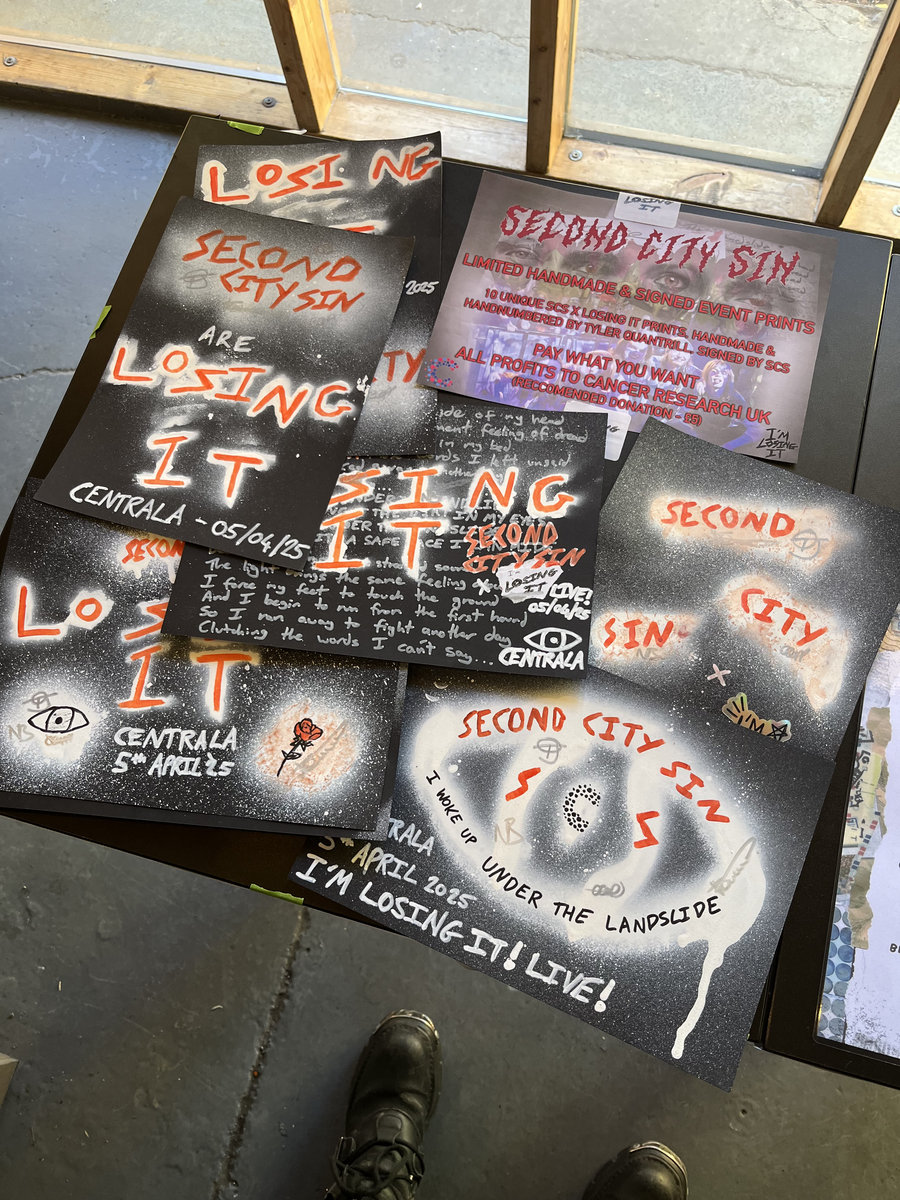 LOSING
2025
SECOND
CITY SIN
ARE
LOSING
IT
CENTRALA - 05/04/25
TY
LOSING
IT
SECOND CITY SIN
LIMITED HANDMADE & SIGNED EVENT PRINTS
10 UNIQUE SCS X LOSING IT PRINTS, HANDMADE &
HANDNUMBERED BY TYLER QUANTRILL, SIGNED BY SCS
PAY WHAT YOU WANT
ALL PROFITS TO CANCER RESEARCH UK
(RECCOMENDED DONATION - £5)
I'M
LOSING
IT
of my head
feeling of dread
in my bed
I left unsaid
SING
IT
SECOND
CITY SIN
A SAFE
X LOSING
IT LIVE!
05/04/25
The same feeling
I force my feet to touch the ground
And I begin to run from the first
So I run away to fight another day
Clutching the words I can't say...
CENTRALA
SECON
LOS
IT
NS
CENTRALA
5TH APRIL 25
SECOND
CITY
SIN
X
SECOND CITY SIN
S C S
I WOKE UP UNDER THE LANDSLIDE
TRALA
5TH APRIL 2025
I'M LOSING IT! LIVE!